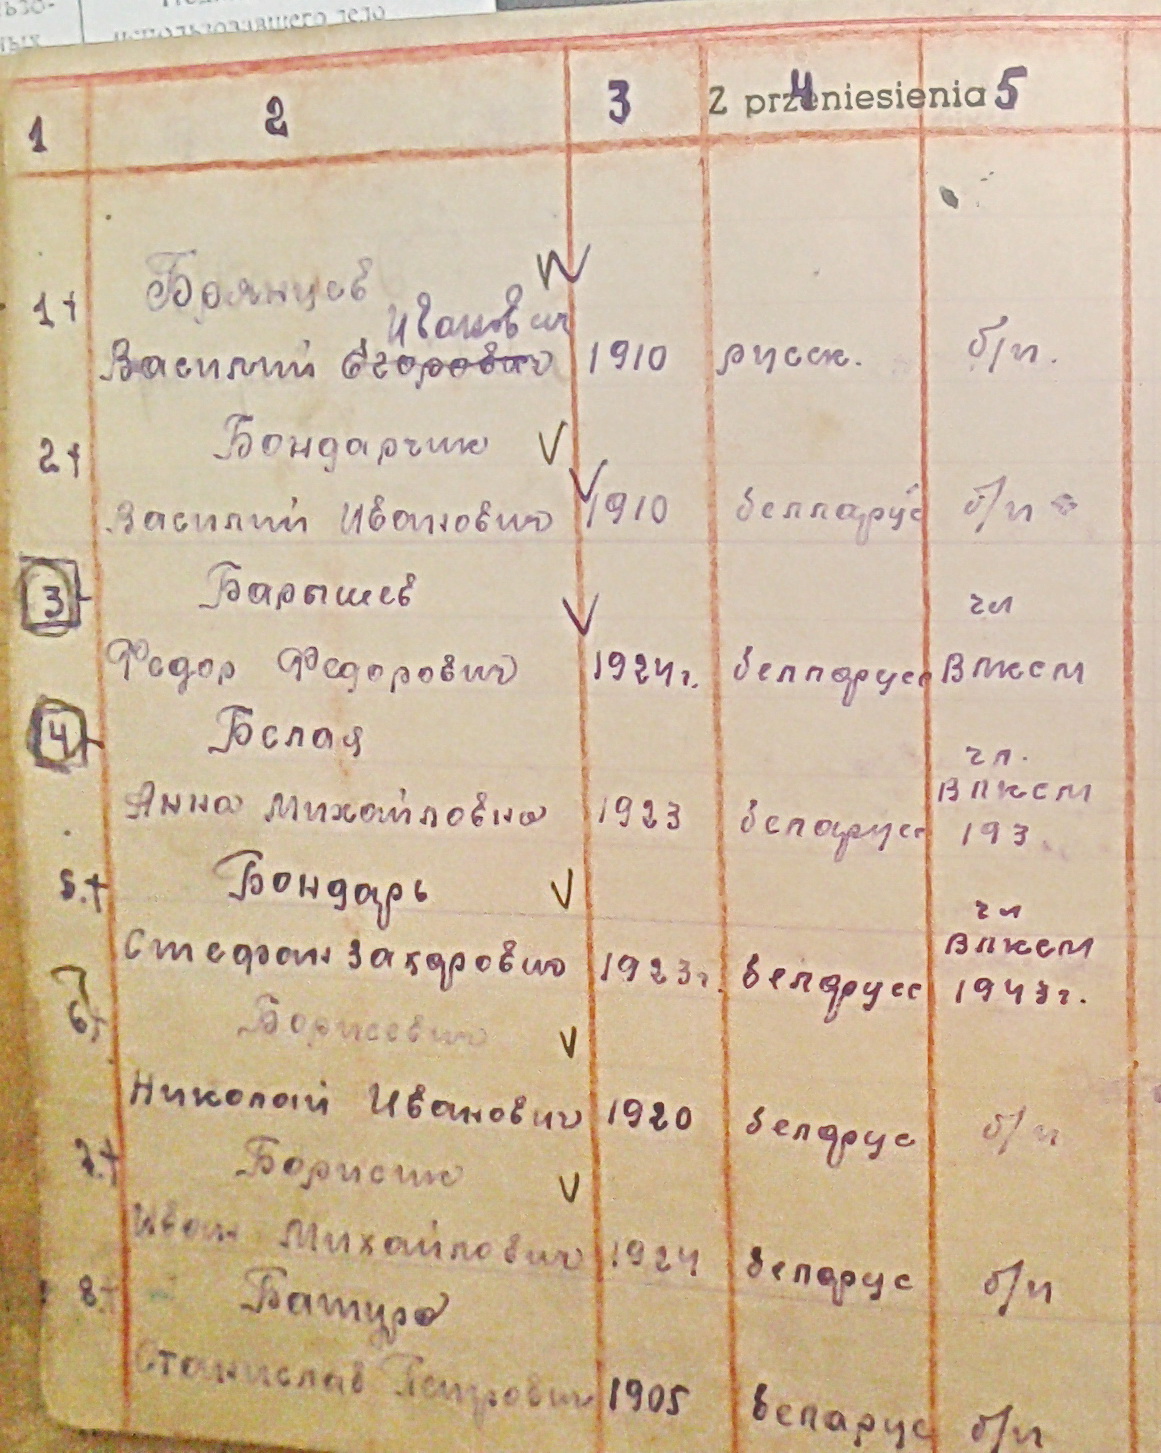 использовавшего дело
1 2 3 Z przeniesienia 4 5
Брянцев
Иванович
1+ Василий Егорович 1910 русск. б/п.
2+ Бондарчик
Василий Иванович 1910 белларус б/п
3 Барышев чл
Федор Федорович 1924г. белларусс ВЛКСМ
4 Белая чл.
ВЛКСМ
Анна Михайловна 1923 беларусс 193
5.+ Бондарь чл
ВЛКСМ
Стефан Захарович 1923г. беларусс 1943г.
6+ Борисевич
Николай Иванович 1920 беларус б/п
7.+ Борисик
Иван Михайлович 1924 беларус б/п
8.+ Батура
Станислав Петрович 1905 беларус б/п